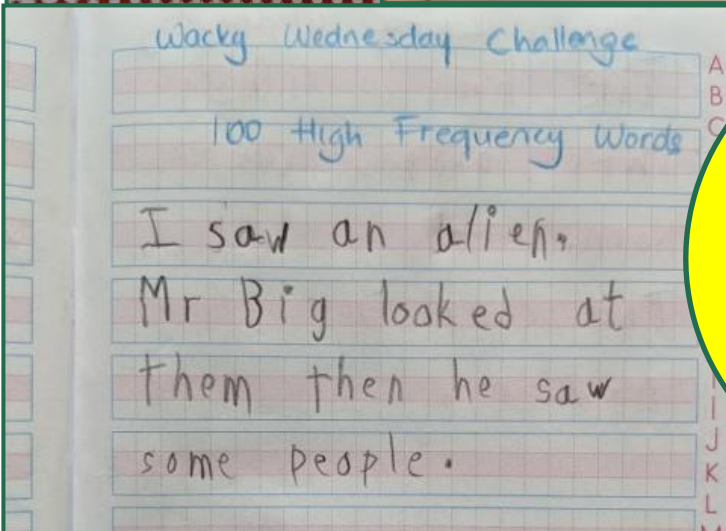 Wacky Wednesday Challenge
100 High Frequency Words
I saw an alien.
Mr Big looked at
them then he saw
some people.
A
B
C
I
J
K
L